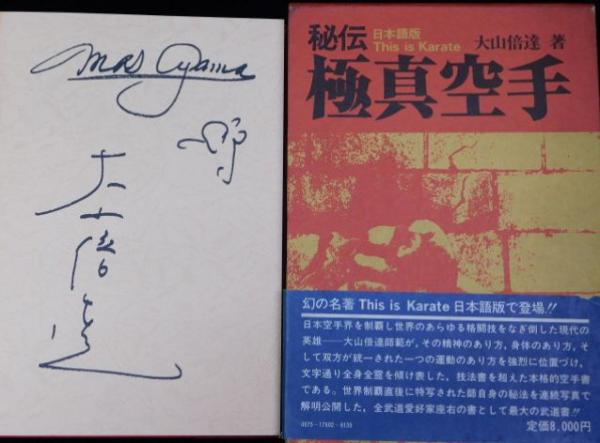 mas oyama
大山倍達
秘伝
日本語版
This is Karate
大山倍達 著
極真空手
幻の名著 This is Karate 日本語版で登場!!
日本空手界を制覇し世界のあらゆる格闘技をなぎ倒した現代の
英雄──大山倍達師範が、その精神のあり方、身体のあり方、そ
して双方が統一された一つの運動のあり方を強烈に位置づけ、
文字通り全身全霊を傾け表した、技法書を超えた本格的空手書
である。世界制覇直後に特写された師自身の秘法を連続写真で
解明公開した、全武道愛好家座右の書として最大の武道書!!
0075-17502-6130
定価8,000円